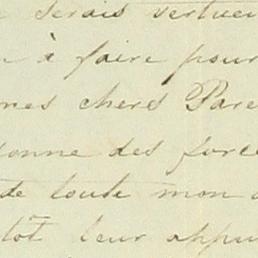 serais vertueu
à faire pour
mes chers Pare
donne des force
de toute mon a
tôt leur appu